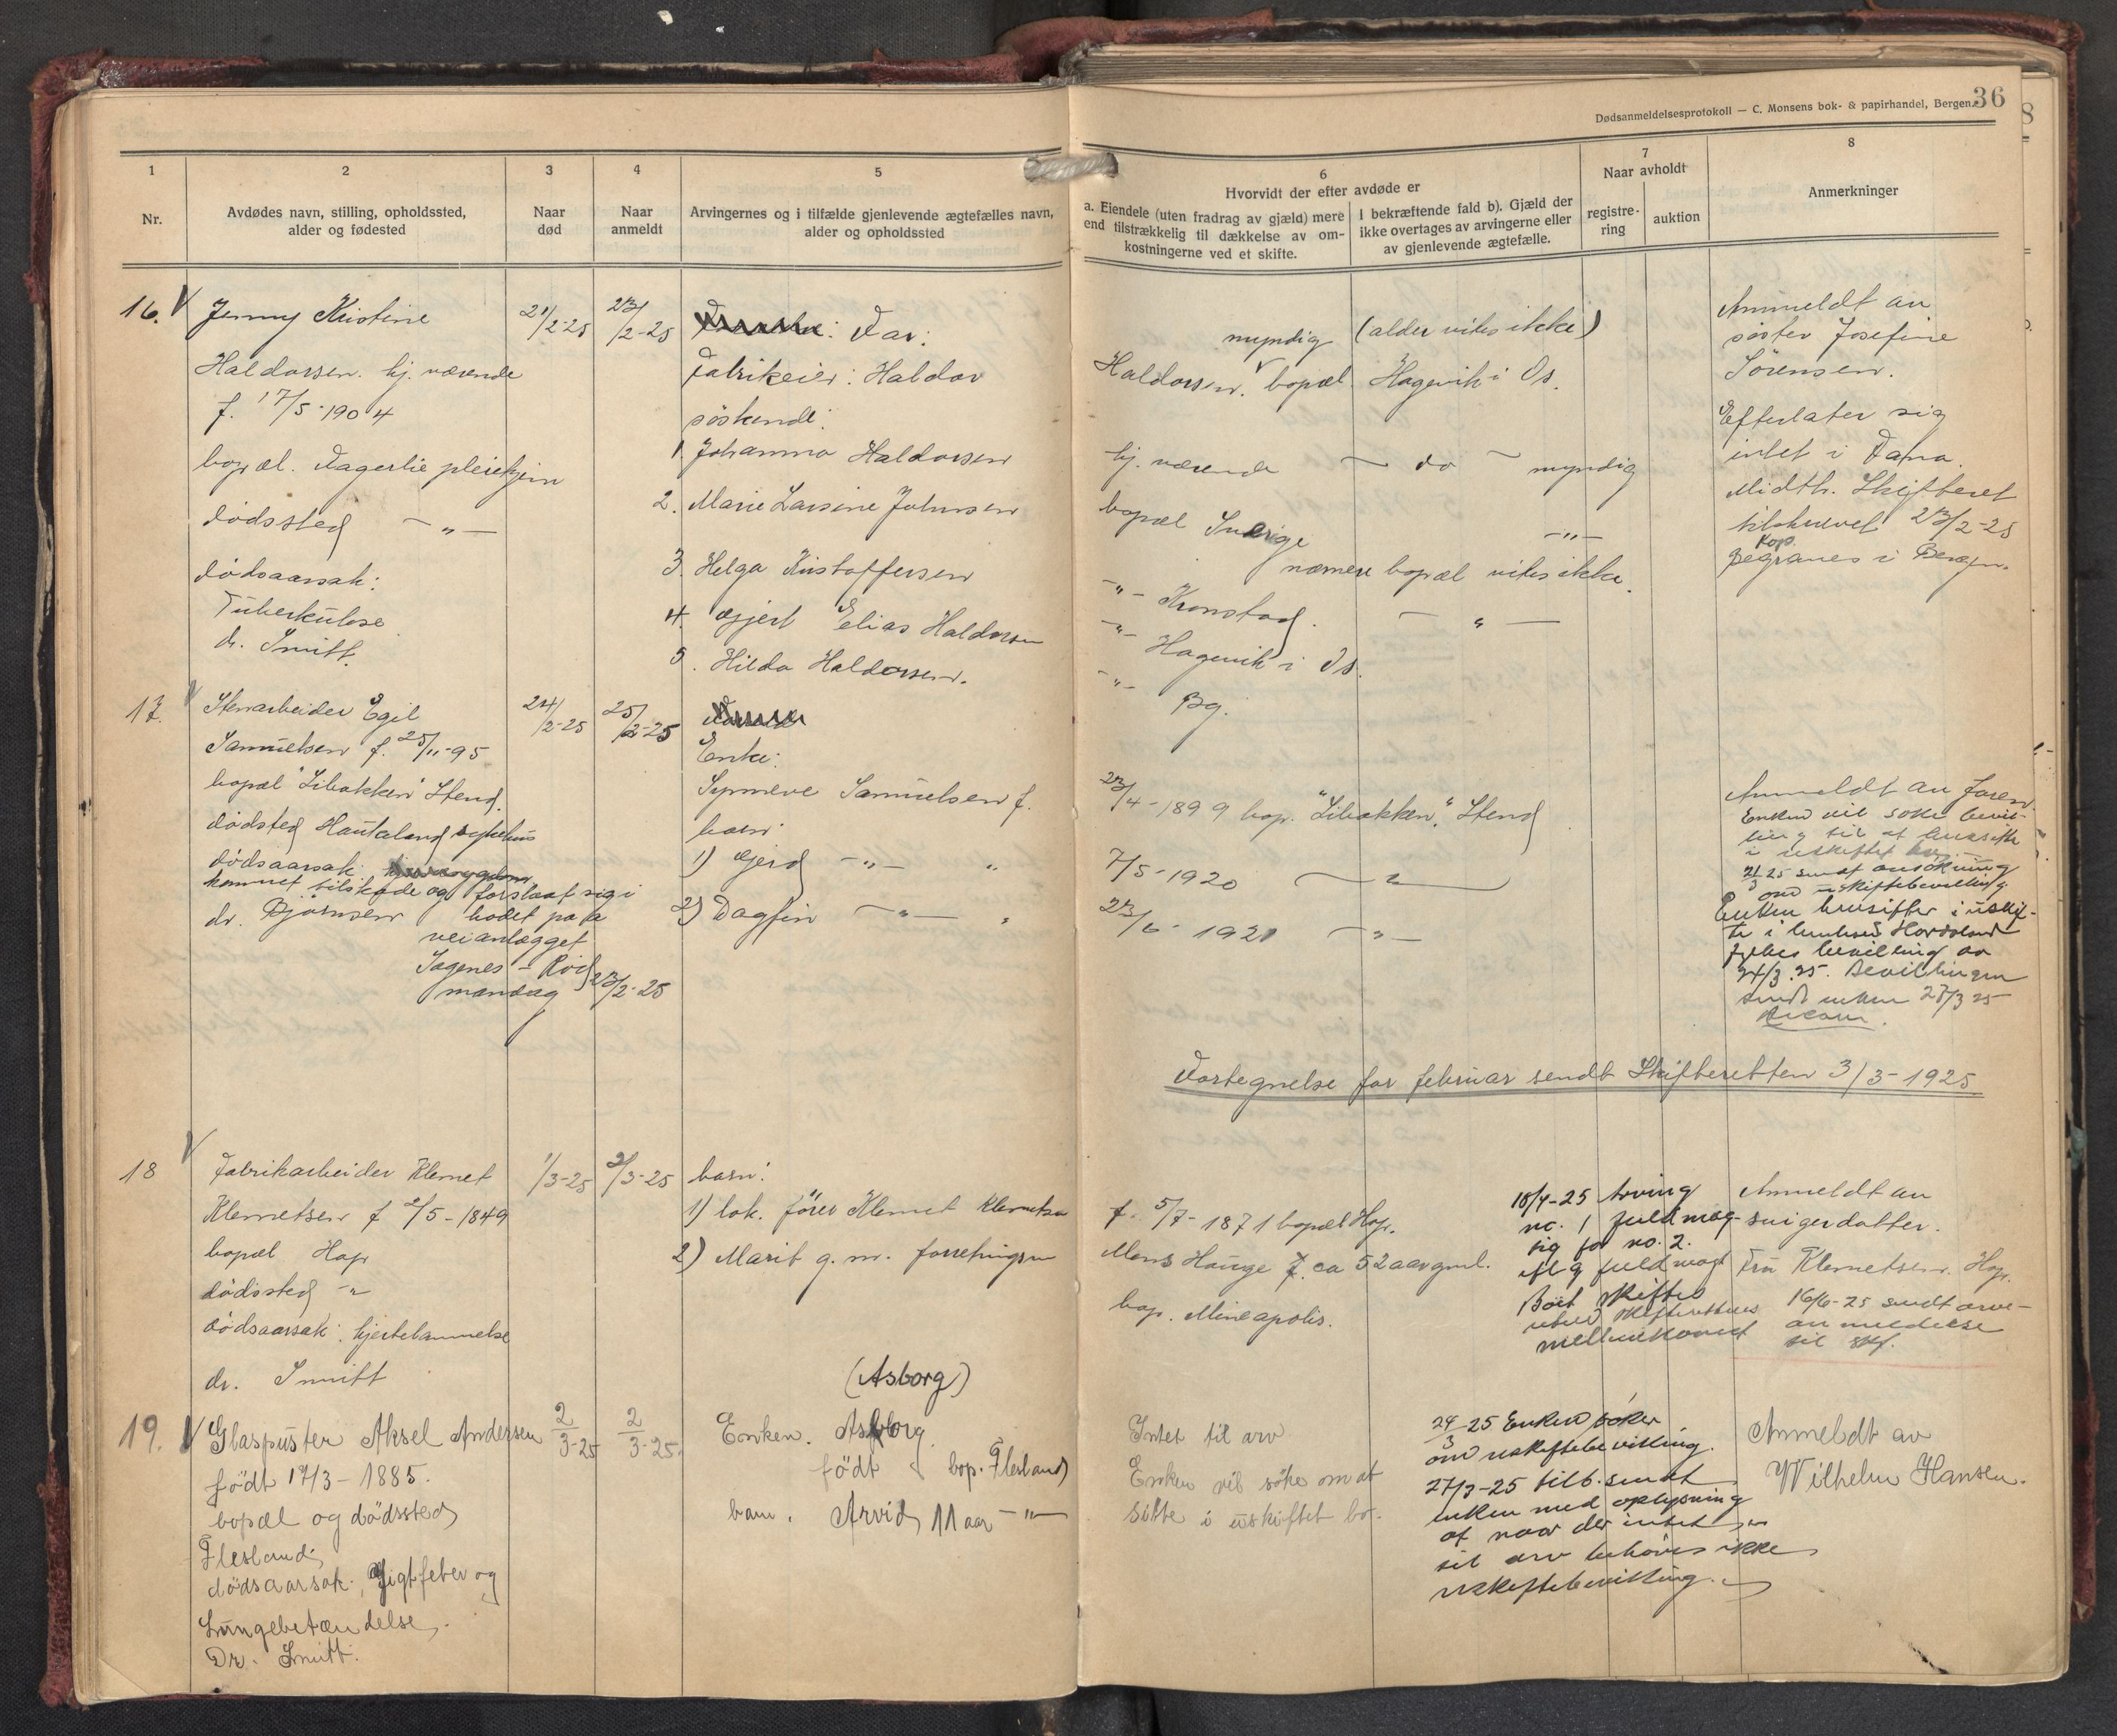 Dødsanmeldelsesprotokoll — C. Monsens bok- & papirhandel, Bergen.
36
1
Nr.
2
Avdødes navn, stilling, opholdssted,
alder og fødested
3
Naar
død
4
Naar
anmeldt
5
Arvingernes og i tilfælde gjenlevende ægtefælles navn,
alder og opholdssted
6
Hvorvidt der efter avdøde er
a. Eiendele (uten fradrag av gjæld) mere
end tilstrækkelig til dækkelse av om-
kostningerne ved et skifte.
I bekræftende fald b). Gjæld der
ikke overtages av arvingerne eller
av gjenlevende ægtefælle.
7
Naar avholdt
registre-
ring
auktion
8
Anmerkninger
16.
Jenny Kristine
Haldorsen. hj. værende
f. 17/5-1904
bopæl. Fagerlie pleiehjem
dødssted —„—
dødsaarsak:
Tuberkulose
dr. Smitt.
21/2-25
23/2-25
Far:
Fabrikeier: Haldor
søskende:
1. Johanna Haldorsen
2. Marie Larsine Johnsen
3. Helga Kristoffersen
4. Gjert Elias Haldorsen
5. Hilda Haldorsen.
myndig (alder vites ikke)
Haldorsen. bopæl Hagevik i Os.
hj. værende — do — myndig
bopæl Sverige —„—
nærmere bopæl vites ikke.
-„- Kronstad. — „ —
-„- Hagevik i Os.
-„- Bg.
Anmeldt av
søster Josefine
Sørensen.
Efterlater sig
intet i Fana.
Midth. Skifteret
tilskrevet 23/2-25
Begraves i Bergen.
17.
Stenarbeider Egil
Samuelsen f. 25/11-95
bopæl "Libakken" Stend.
dødsted Haukeland sykehus
dødsaarsak:
kommet tilskade og forslaat sig i
dr. Bjørnsen hodet paa
veianlægget
Søgnes - Rød
mandag 23/2-25
24/2-25
25/2-25
Enke:
Synneve Samuelsen f.
barn:
1) Gjerd —„— „
2) Dagfin —„— „
23/4-1899 bop. "Libakken", Stend
7/5-1920 — „ —
23/6-1921 —„—
Anmeldt av
Enken vil søke bevil-
ling til at hensitte
i uskiftet bo
21/3 25 sendt ansøkning
om uskiftebevilling
Enken hensitter i uskif-
te i henhold Hordaland
fylkes bevilling av
24/3.25. Bevillingen
sendt enken 27/3 25
Fortegnelse for februar sendt Skifteretten 3/3-1925
18
Fabrikarbeider Klemet
Klemetsen f 2/5-1849
bopæl Hop
dødssted -„
dødsaarsak: hjertelammelse
dr. Smitt
1/3-25
2/3-25
barn:
1) lok. fører Klemet Klemetsen
2) Marit g. m. forretningsm
f. 5/7-1871 bopæl Hop.
Mons Hauge f. ca 52 aar gml.
bop. Mineapolis.
18/4-25 Arving
no. 1 fuldmæg-
tig for no. 2.
iflg fuldmagt
Boet skiftes
uten skifterettens
mellemkomst
Anmeldt av
svigerdatter.
Fru Klemetsen. Hop.
16/6-25 sendt arve-
anmeldelse
til skf.
19.
Glaspuster Aksel Andersen
født 17/3-1885.
bopæl og dødssted
Flesland
dødsaarsak: Gigtfeber og
Lungebetændelse.
Dr. Smitt.
2/3-25
2/3-25.
(Asborg)
Enken. Asborg
født bop. Flesland
barn. Arvid 11 aar —„—
Intet til arv
Enken vil søke om at
sitte i uskiftet bo.
24/3 25 Enken søker
om uskiftebevilling.
27/3-25 tilb.sendt
enken med oplysning
at naar der intet er
til arv behøves ikke
uskiftebevilling.
Anmeldt av
Wilhelm Hansen.